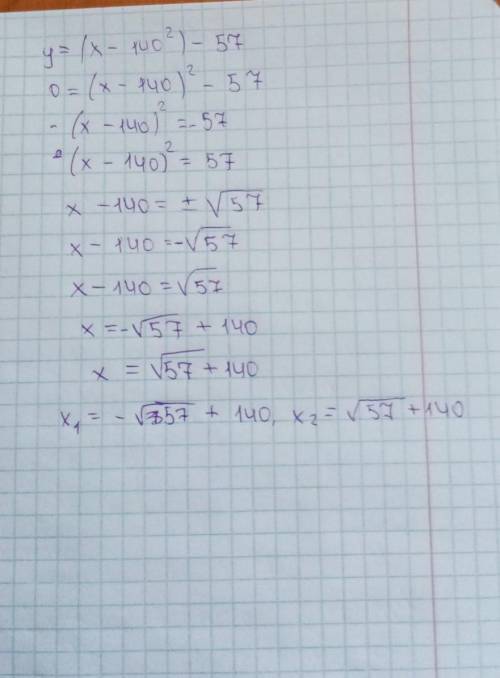 y = (x - 140²) - 57
0 = (x - 140)² - 57
- (x - 140)² = - 57
(x - 140)² = 57
x - 140 = ± √57
x - 140 = -√57
x - 140 = √57
x = -√57 + 140
x = √57 + 140
x₁ = - √57 + 140, x₂ = √57 + 140